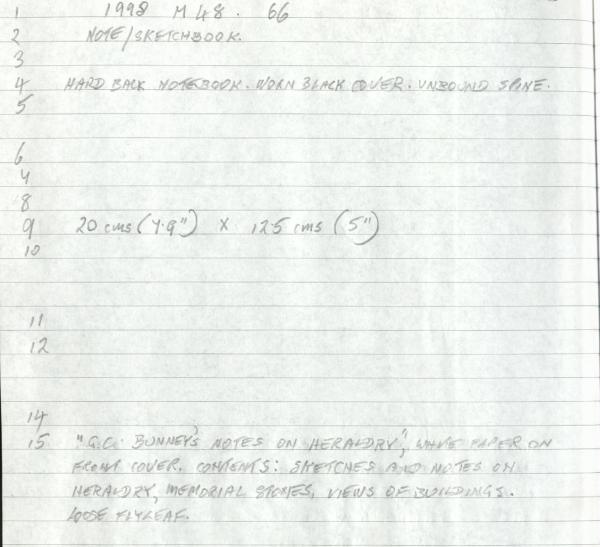 1 1998 M 48. 66
2 NOTE/SKETCHBOOK.
3
4 HARD BACK NOTEBOOK. WORN BLACK COVER. UNBOUND SPINE.
5
6
7
8
9 20 cms (7.9") x 12.5 cms (5")
10
11
12
14
15 "G.C. BUNNEY'S NOTES ON HERALDRY", WHITE PAPER ON
FRONT COVER. CONTENTS: SKETCHES AND NOTES ON
HERALDRY, MEMORIAL STONES, VIEWS OF BUILDINGS.
LOOSE FLYLEAF.